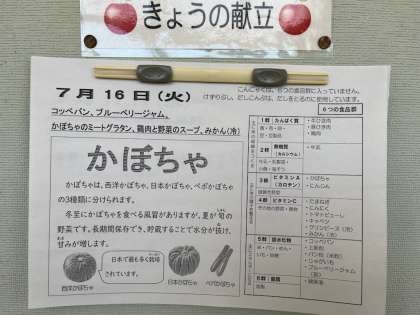 きょうの献立
7月16日(火)
こんにゃくは、6つの食品群に入っていません。
けずりぶし、だしこんぶは、だしをとるのに使用しています。
コッペパン、ブルーベリージャム、
かぼちゃのミートグラタン、鶏肉と野菜のスープ、みかん(冷)
かぼちゃ
かぼちゃは、西洋かぼちゃ、日本かぼちゃ、ペポかぼちゃ
の3種類に分けられます。
冬至にかぼちゃを食べる風習がありますが、夏が旬の
野菜です。長期間保存でき、貯蔵することで水分が抜け、
甘みが増します。
日本で最も多く栽培
されています。
西洋かぼちゃ
日本かぼちゃ
ペポかぼちゃ
6つの食品群
1群 たんぱく質
牛ひき肉
豚ひき肉
鶏肉
2群 無機質
(カルシウム)
牛乳
3群 ビタミンA
(カロテン)
かぼちゃ
にんじん
4群 ビタミンC
たまねぎ
にんにく
トマトピューレ
キャベツ
グリンピース(冷)
みかん(冷)
5群 炭水化物
コッペパン
上新粉
パン粉(米粉)
じゃがいも
ブルーベリージャム
6群 脂質